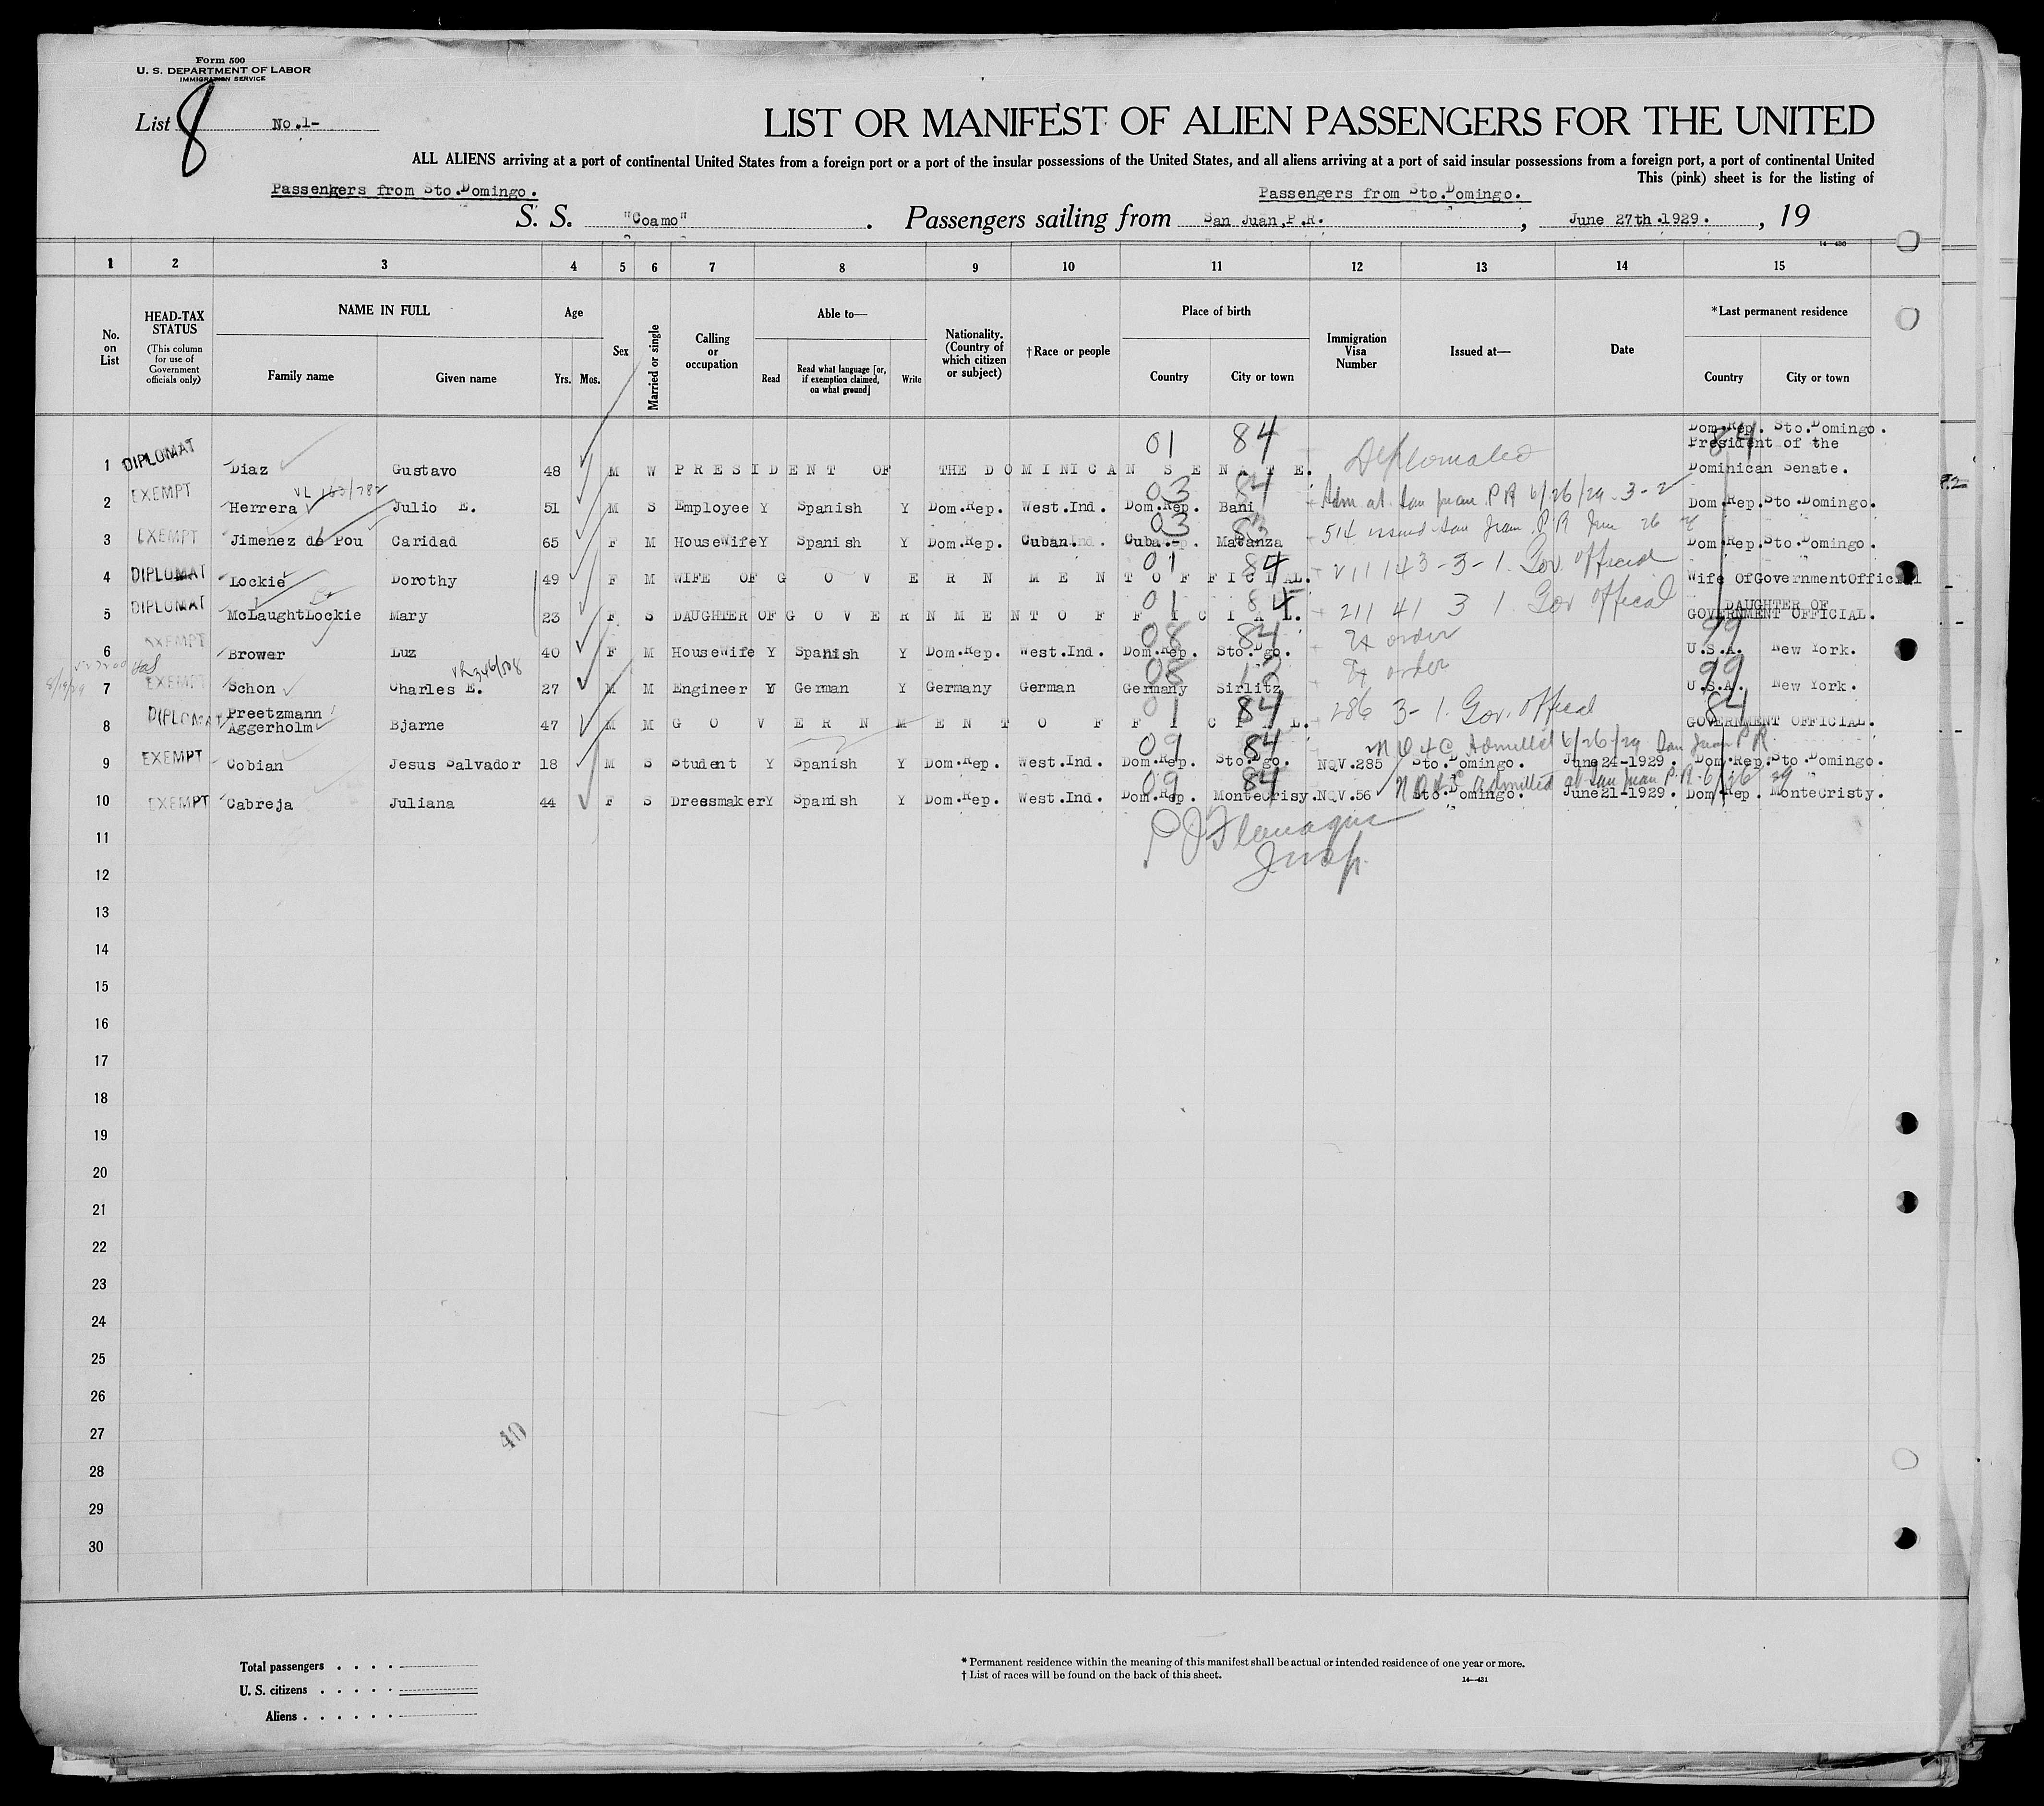 Form 500
U. S. DEPARTMENT OF LABOR
IMMIGRATION SERVICE
List 8 No.1-
LIST OR MANIFEST OF ALIEN PASSENGERS FOR THE UNITED
ALL ALIENS arriving at a port of continental United States from a foreign port or a port of the insular possessions of the United States, and all aliens arriving at a port of said insular possessions from a foreign port, a port of continental United
This (pink) sheet is for the listing of
Passengers from Sto.Domingo. Passengers from Sto.Domingo.
S. S. "Coamo" . Passengers sailing from San Juan,P.R. , June 27th.1929. , 19
14-430
1 2 3 4 5 6 7 8 9 10 11 12 13 14 15
No. on List HEAD-TAX STATUS (This column for use of Government officials only) NAME IN FULL Family name Given name Age Yrs. Mos. Sex Married or single Calling or occupation Able to— Read Read what language [or, if exemption claimed, on what ground] Write Nationality. (Country of which citizen or subject) †Race or people Place of birth Country City or town Immigration Visa Number Issued at— Date *Last permanent residence Country City or town
01 84 Dom.Rep. Sto.Domingo.
84 President of the
1 DIPLOMAT Diaz Gustavo 48 M W PRESIDENT OF THE DOMINICAN SENATE. Dominican Senate.
VL 163/782 03 84
2 EXEMPT Herrera Julio E. 51 M S Employee Y Spanish Y Dom.Rep. West.Ind. Dom.Rep. Bani Adm at San Juan P R 6/26/29 3-2 Dom.Rep.Sto.Domingo.
03 83
3 EXEMPT Jimenez de Pou Caridad 65 F M HouseWife Y Spanish Y Dom.Rep. Cuban. Cuba. Matanza 514 issued San Juan P R June 26 Dom.Rep.Sto.Domingo.
01 84
4 DIPLOMAT Lockie Dorothy 49 F M WIFE OF GOVERNMENT OFFICIAL. 3-1. Gov. official Wife OfGovernmentOfficial
01 84 DAUGHTER OF
5 DIPLOMAT McLaughtLockie Mary 23 F S DAUGHTER OF GOVERNMENT OFFICIAL. 211 41 3 1. Gov offical GOVERNMENT OFFICIAL.
08 84 99
6 EXEMPT Brower Luz 40 F M HouseWife Y Spanish Y Dom.Rep. West.Ind. Dom.Rep. Sto.Dgo. order U.S.A. New York.
8/19/29 VR346/508 08 99
7 EXEMPT Schon Charles E. 27 M M Engineer Y German Y Germany German Germany Sirlitz order U.S.A. New York.
Preetzmann 01 84 84
8 DIPLOMAT Aggerholm Bjarne 47 M M GOVERNMENT OFFICIAL. 286 3-1. Gov. offical GOVERNMENT OFFICIAL.
09 84 Admitted 6/26/29 San Juan P R
9 EXEMPT Cobian Jesus Salvador 18 M S Student Y Spanish Y Dom.Rep. West.Ind. Dom.Rep. Sto.Dgo. NQV.285 Sto.Domingo. June24-1929. Dom.Rep.Sto.Domingo.
09 84 Admitted at San Juan P.R. 6/26 29
10 EXEMPT Cabreja Juliana 44 F S Dressmaker Y Spanish Y Dom.Rep. West.Ind. Dom.Rep. MonteCrisy. NQV.56 Sto.Domingo. June21-1929. Dom.Rep. MonteCristy.
11 P J Flanagan
12 Insp.
13
14
15
16
17
18
19
20
21
22
23
24
25
26
27 40
28
29
30
Total passengers . . . .
U. S. citizens . . . . .
Aliens . . . . . .
* Permanent residence within the meaning of this manifest shall be actual or intended residence of one year or more.
† List of races will be found on the back of this sheet.
14-431